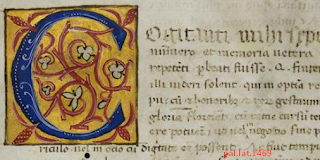 Cogitanti mihi sepe
numero et memoria vetera
repeteti pbeati fuisse. Q. frater
illi videri solent qui in optia re
pu cu et honorib et rer gestarum
gloria florerent eum vite cursu ten
ere potuerut ut vel negotio sine p
riculo vel in otio cu dignitate ee possent
pal.lat.1469